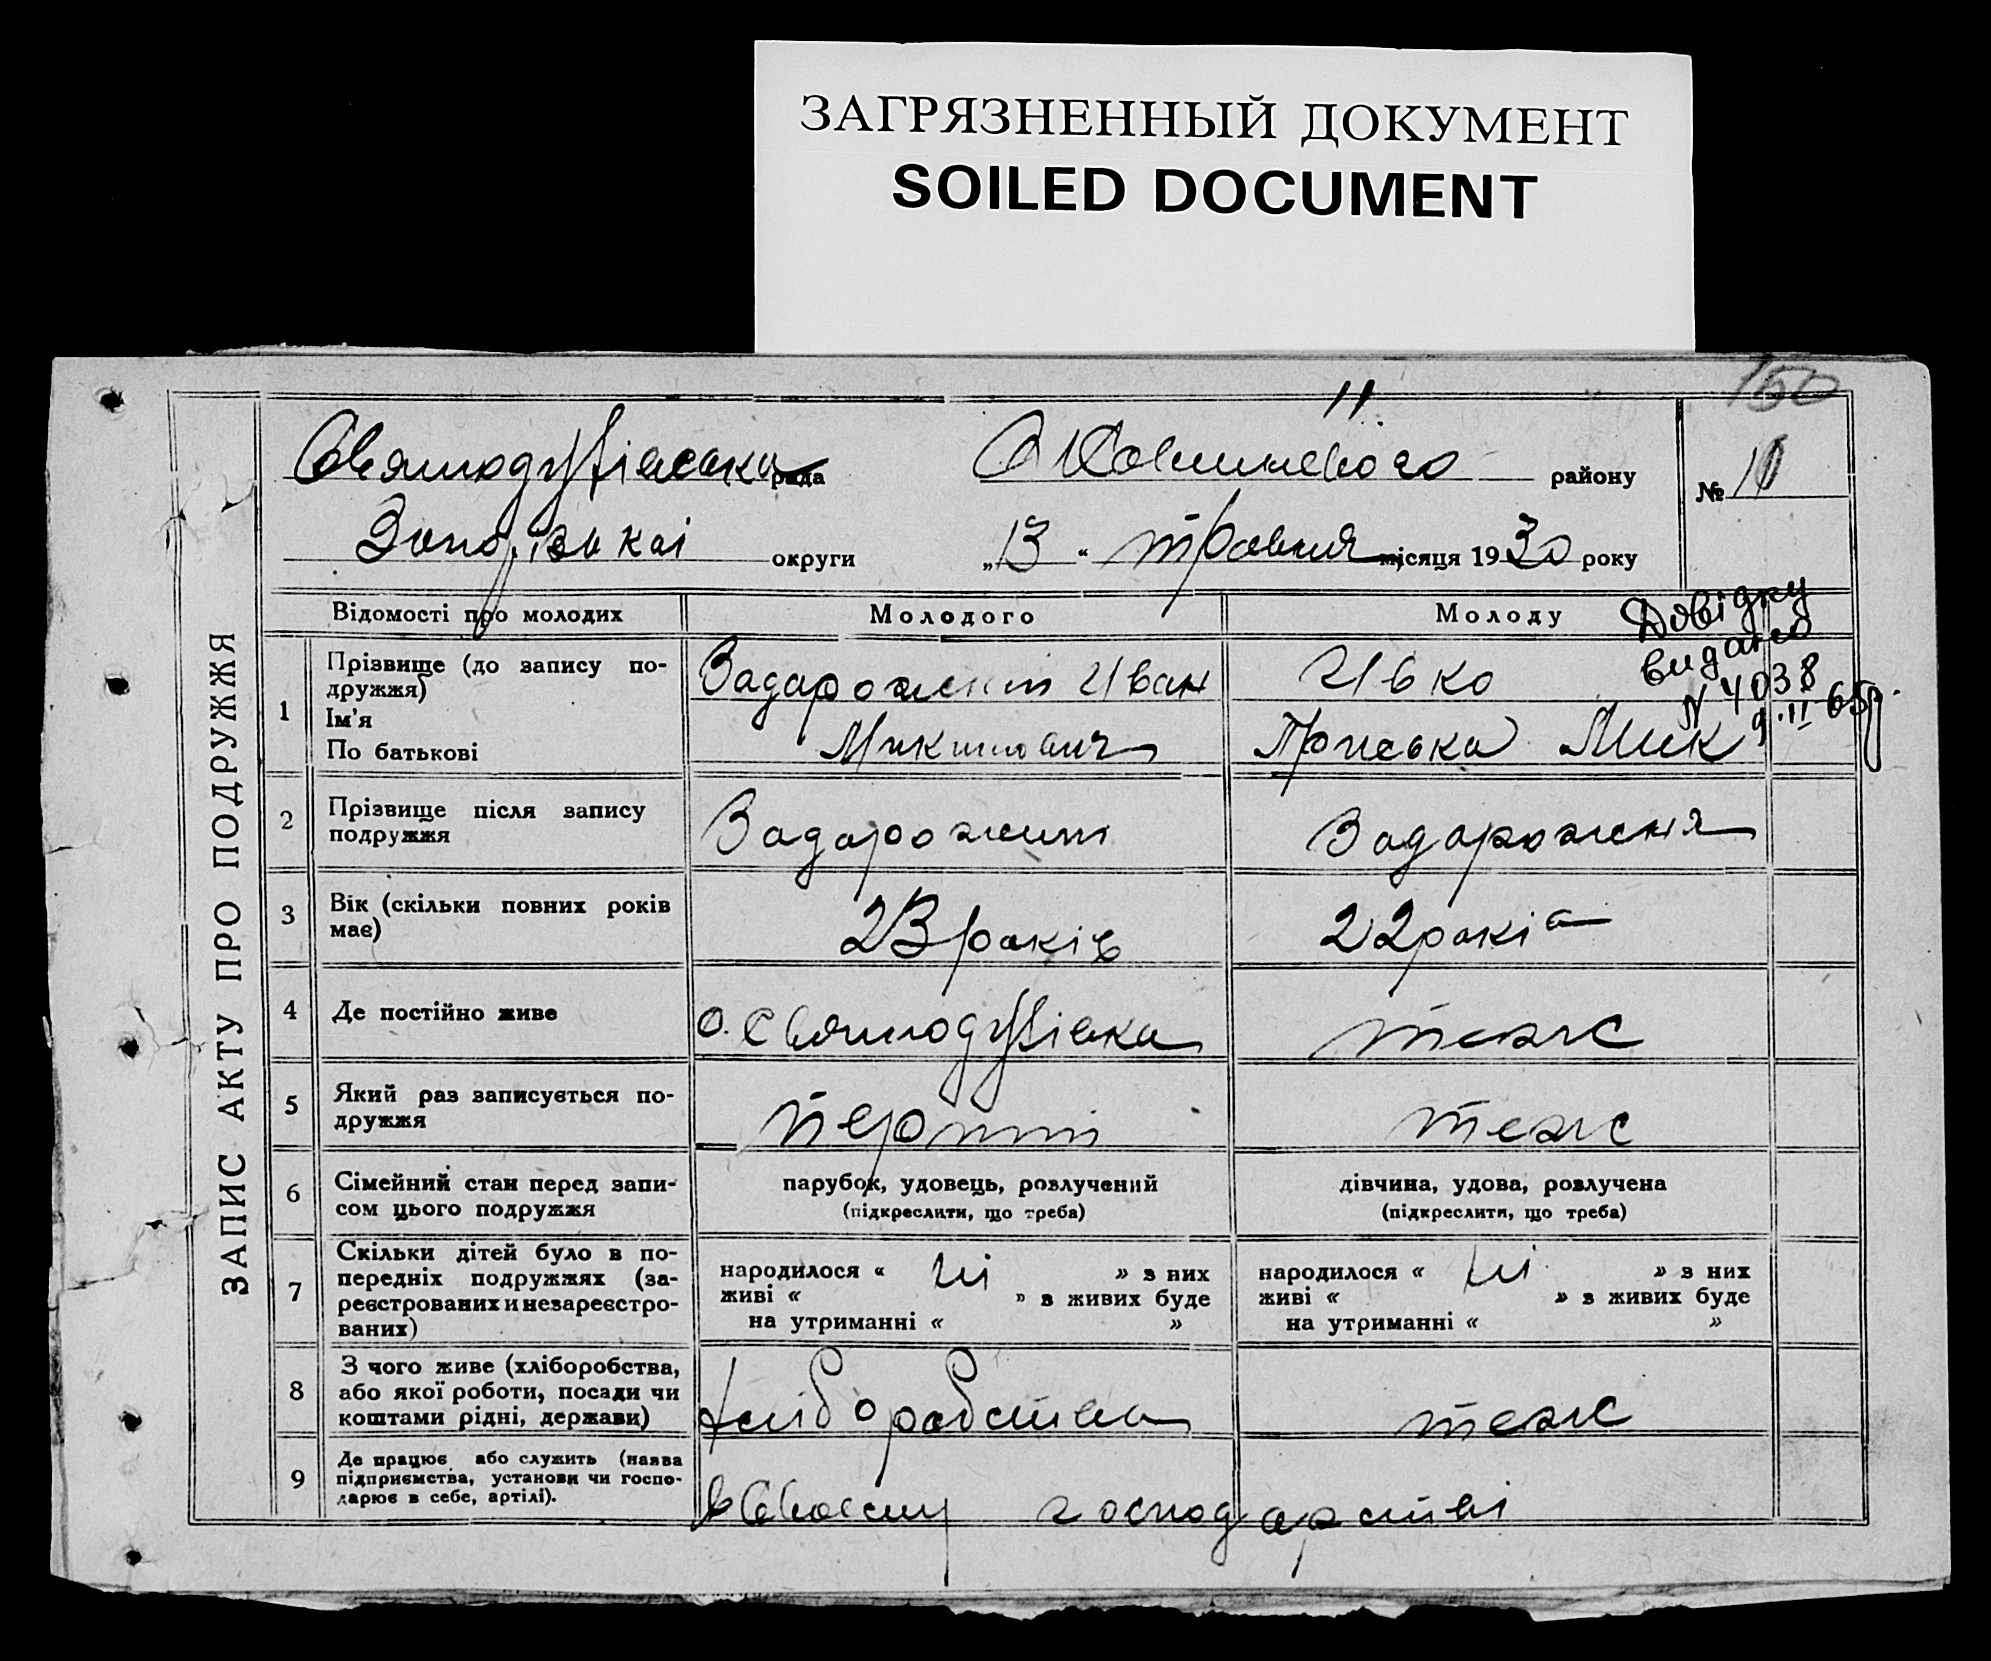 ЗАГРЯЗНЕННЫЙ ДОКУМЕНТ
SOILED DOCUMENT
150
11
Святодухівська рада
району
№ 11
округи
„ 13 “ травня місяця 1930 року
ЗАПИС АКТУ ПРО ПОДРУЖЖЯ
Відомості про молодих
Молодого
Молоду
Довідку
видано
N 4038
9.II 65р.
1
Прізвище (до запису по-
дружжя)
Ім'я
По батькові
Задарожний Иван
Микитович
Ивко
Приська Мик
2
Прізвище після запису
подружжя
Задарожний
Задарожня
3
Вік (скільки повних років
має)
23 років
22 років
4
Де постійно живе
с. Святодухівка
теж
5
Який раз записується по-
дружжя
перший
теж
6
Сімейний стан перед запи-
сом цього подружжя
парубок, удовець, розлучений
(підкреслити, що треба)
дівчина, удова, розлучена
(підкреслити, що треба)
7
Скільки дітей було в по-
передніх подружжях (за-
реєстрованих и незареєстро-
ваних)
народилося « ні » з них
живі « » з живих буде
на утриманні « »
народилося « ні » з них
живі « » з живих буде
на утриманні « »
8
З чого живе (хліборобства,
або якої роботи, посади чи
коштами рідні, держави)
хліборобства
теж
9
Де працює або служить (назва
підприємства, установи чи госпо-
дарює в себе, артілі).
в своєму господарстві